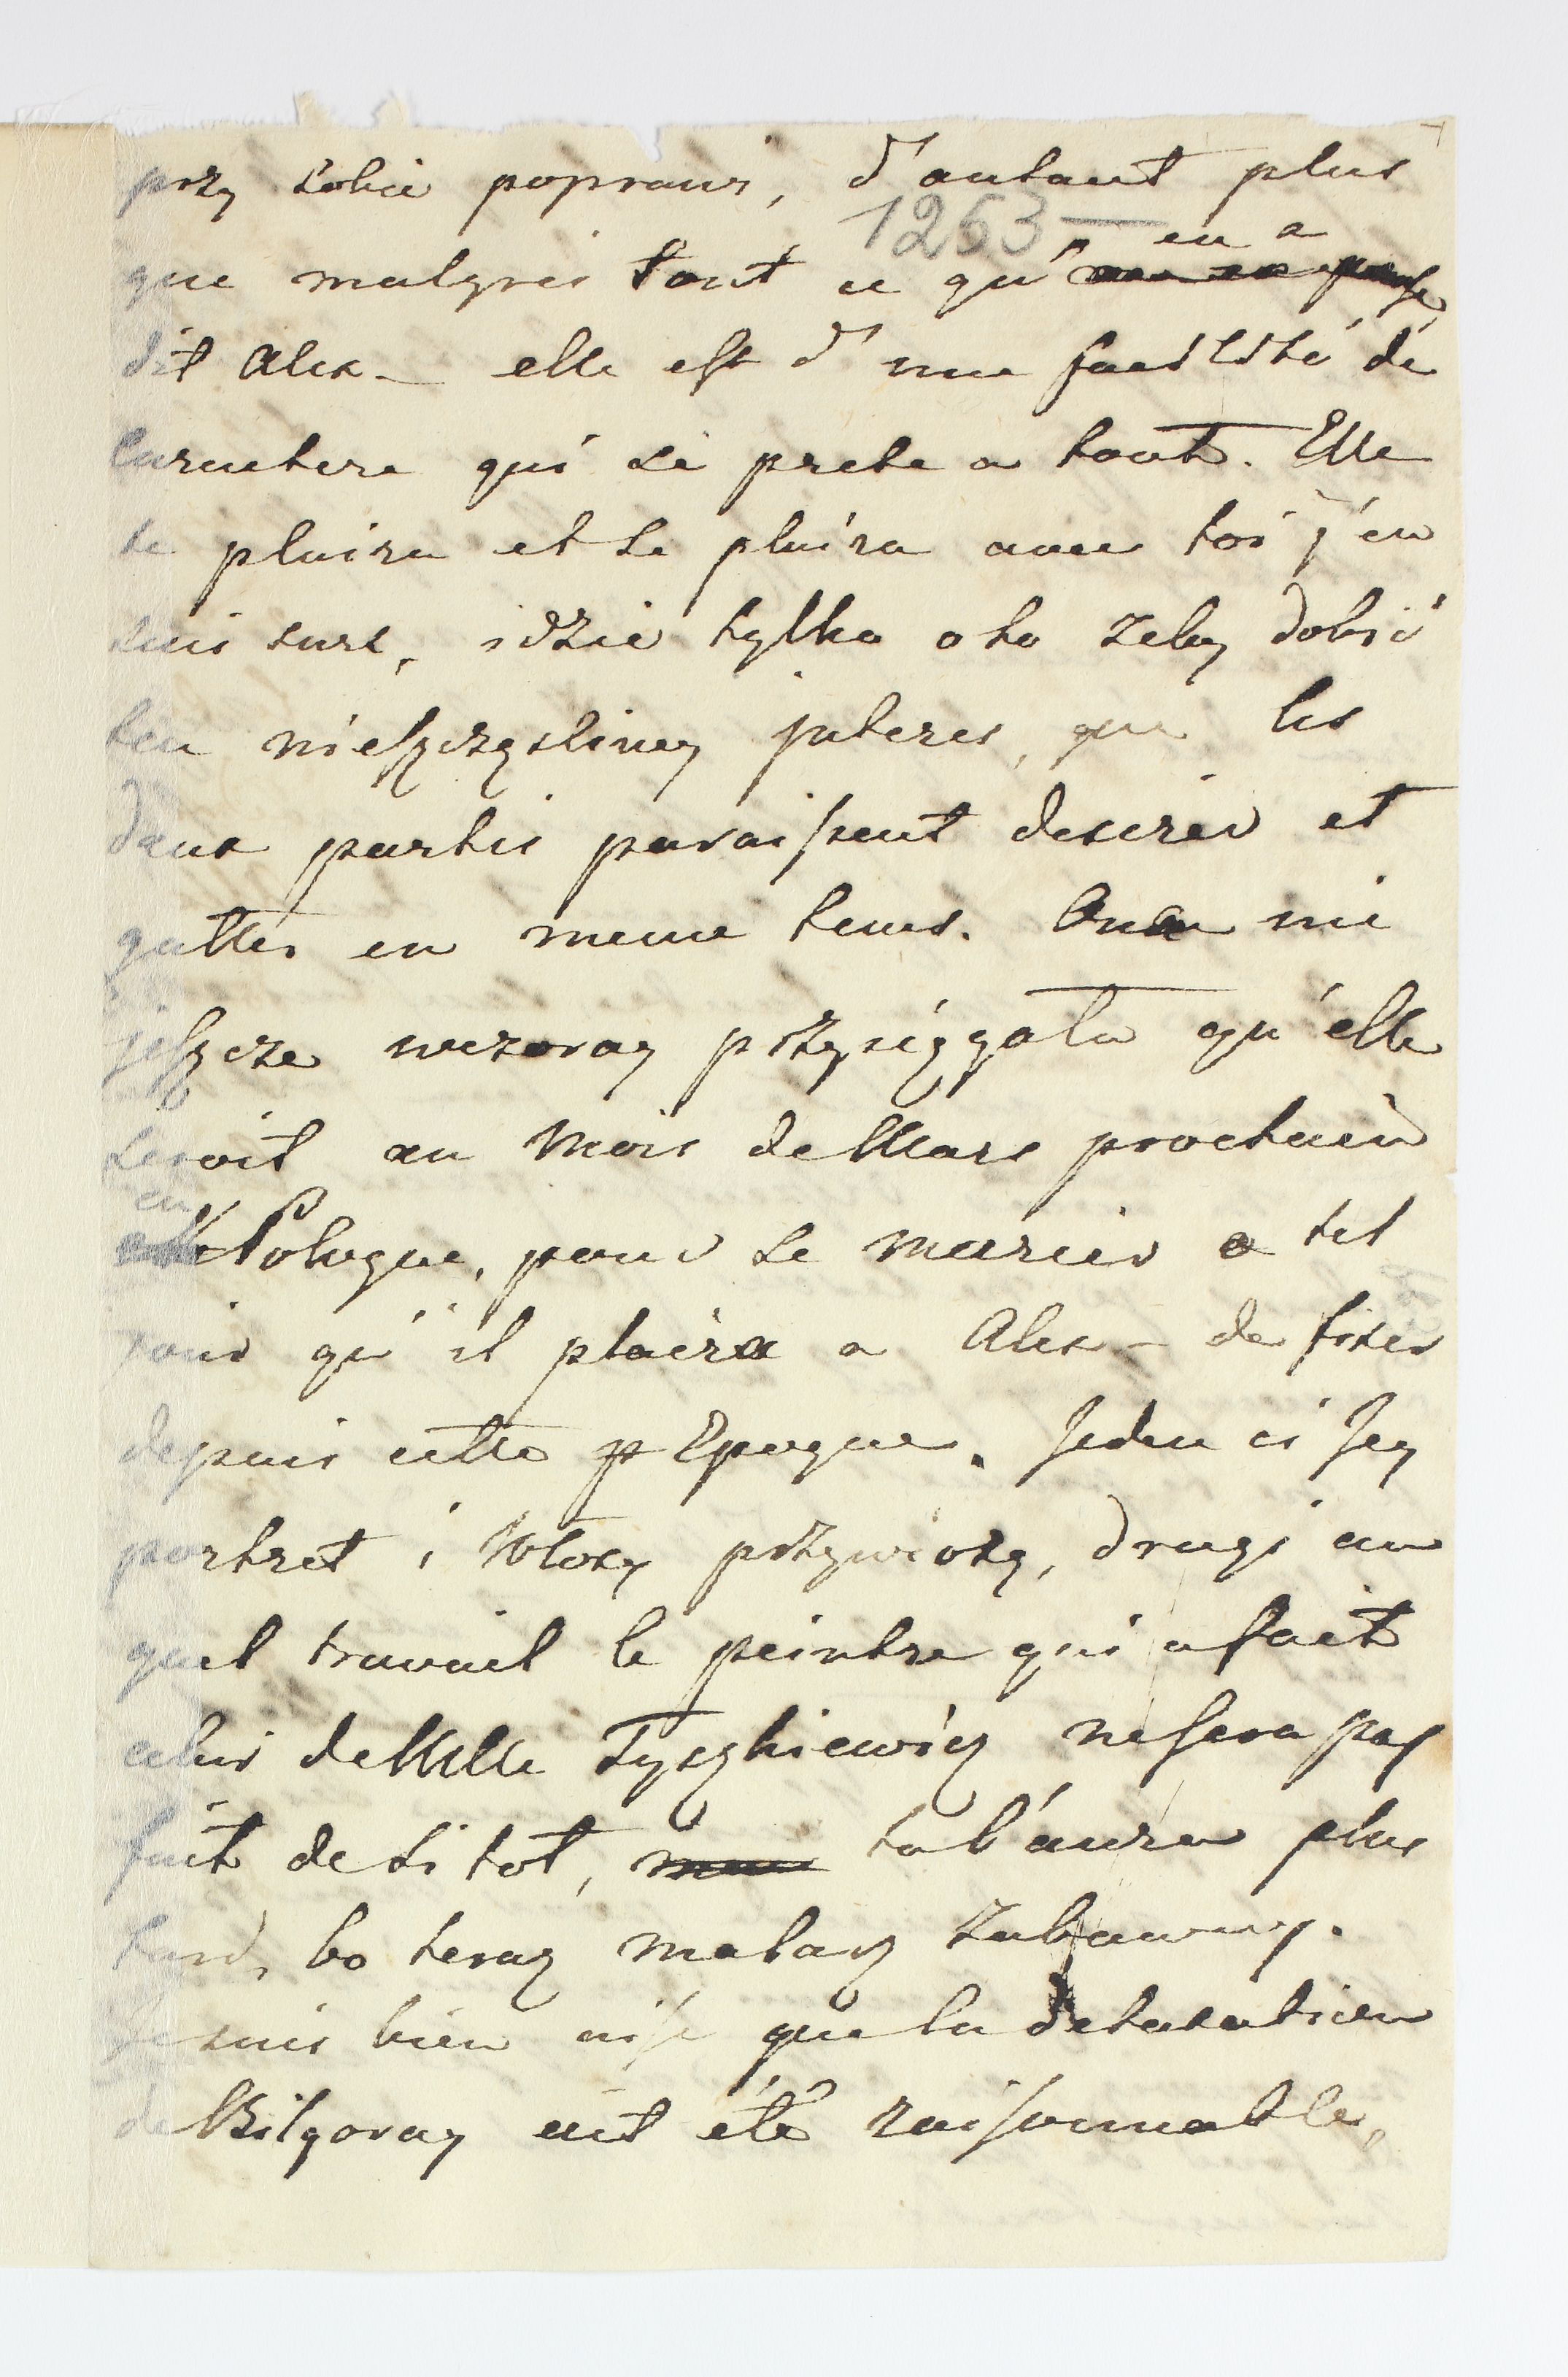 przy sobie poprawi, d'autant plus
1263 —
en a
que malgré tout ce qu'
dit Alex- elle est d'une facilité de
caractere qui se prete a tout. Elle
te plaira et se plaira avec toi j'en
suis sure, idzie tylko o to zeby dobić
ten nieszczęsliwy jnteres, que les
deux partis paraissent desirer et
gatter en meme tems. Ona mi
jeszcze wczoray przysięgała qu'elle
seroit au Mois de Mars prochain
en
Pologne, pour se marier a tel
jour qu'il plaira a Alex- de fixer
depuis cette Epoque. Jeden ci Jey
portret i Włosy przywiozę, drugi au
quel travail le peintre qui a fait
celui de Mlle Tyszkiewicz ne sera pas
fait de si tot, tu l'aura plus
tard, bo teraz malarz zabawny.
Je suis bien aise que la detaxation
de Bilgoray ait été raisonnable,